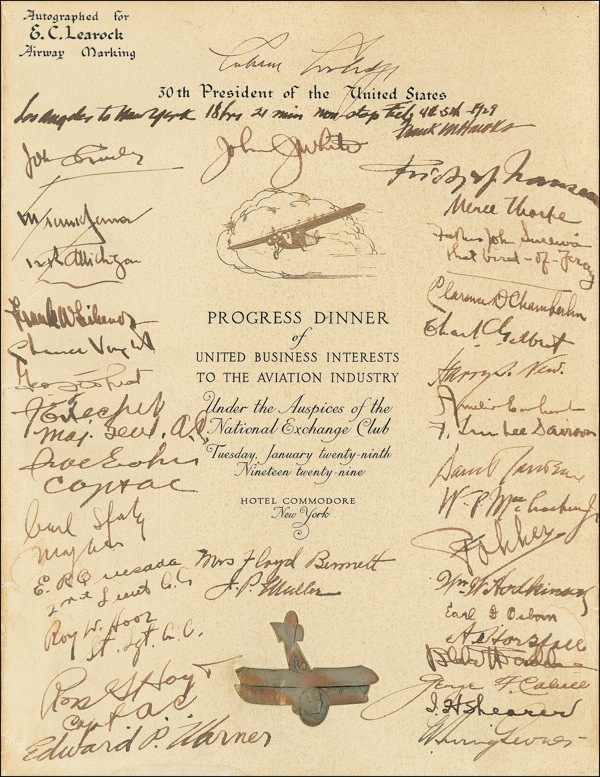 Autographed for
E. C. Learock
Airway Marking
Calvin Coolidge
30th President of the United States
Los Angeles to New York 18 hrs 21 min non stop Feby 4th 5th - 1929
Frank M Hawks
John J White
Merce Thorpe
Father John Sullivan
that bird-of-Jersey
Clarence D Chamberlin
Frank Whitbeck
Chance Vought
PROGRESS DINNER
of
UNITED BUSINESS INTERESTS
TO THE AVIATION INDUSTRY
Under the Auspices of the
National Exchange Club
Tuesday, January twenty-ninth
Nineteen twenty-nine
HOTEL COMMODORE
New York
Harry S. New
Amelia Earhart
F. Trubee Davison
J E Fechet
Maj. Genl. A.C.
Ira C Eaker
Capt AC
Carl Spatz
Maj AC
W. P. MacCracken Jr
Fokker
E. R. Quesada
2nd Lieut A.C.
Mrs Floyd Bennett
J. P. Muller
Wm W Hodkinson
Earl D Osborn
Roy W. Hooe
St. Sgt. A.C.
Ross G Hoyt
Capt. A.C.
George F. Cahill
Edward P. Warner